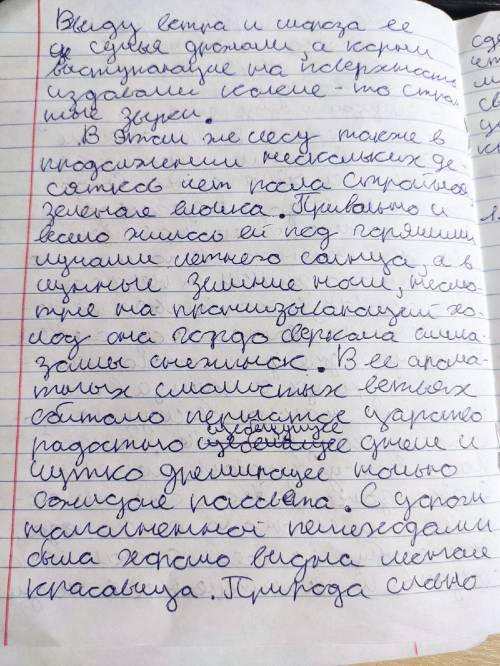 Ввиду ветра и мороза ее
сучья дрожали, а корни
выступающие на поверхность
издавали какие-то стран
ные звуки.
В этом же лесу также в
продолжении нескольких де
сятков лет росла стройная
зеленая елочка. Привольно и
весело жилось ей под горячими
лучами летнего солнца, а в
лунные зимние ночи, несмо
тря на пронизывающий хо-
лод она гордо сверкала алма-
зами снежинок. В ее арома
тных смолистых ветвях
обитало пернатое царство
радостно щебечущее днем и
чутко дремлющее только
ожидая рассвета. С дороги
наполненной пешеходами
была хорошо видна лесная
красавица. Природа словно